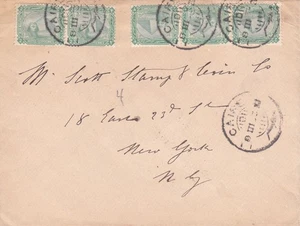 CAIRO
CAIRO
CAIRO
Mr. Scott Stamp & Coin Co
4
18 East 23d St
New York
N. Y
CAIRO